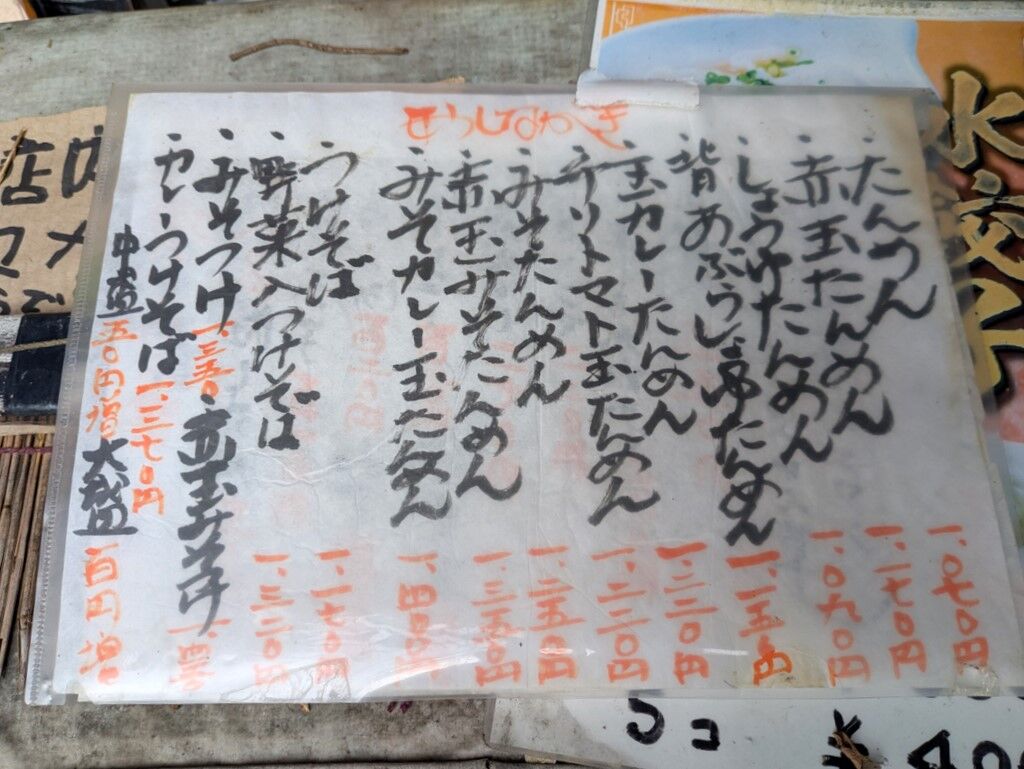 たんめん 一、〇七〇円
赤玉たんめん 一、一七〇円
しょうゆたんめん 一、〇九〇円
背あぶらしょうゆたんめん 一、一五〇円
玉カレーたんめん 一、二二〇円
辛リトマト玉たんめん 一、二二〇円
みそたんめん 一、二五〇円
赤玉みそたんめん 一、三五〇円
みそカレー玉たんめん 一、四〇〇円
つけそば 一、一七〇円
野菜入つけそば 一、三二〇円
みそつけ 一、三五〇
赤玉みそつけ
カレーつけそば 一、三七〇円
中盛 五〇円増 大盛 百円増
店内